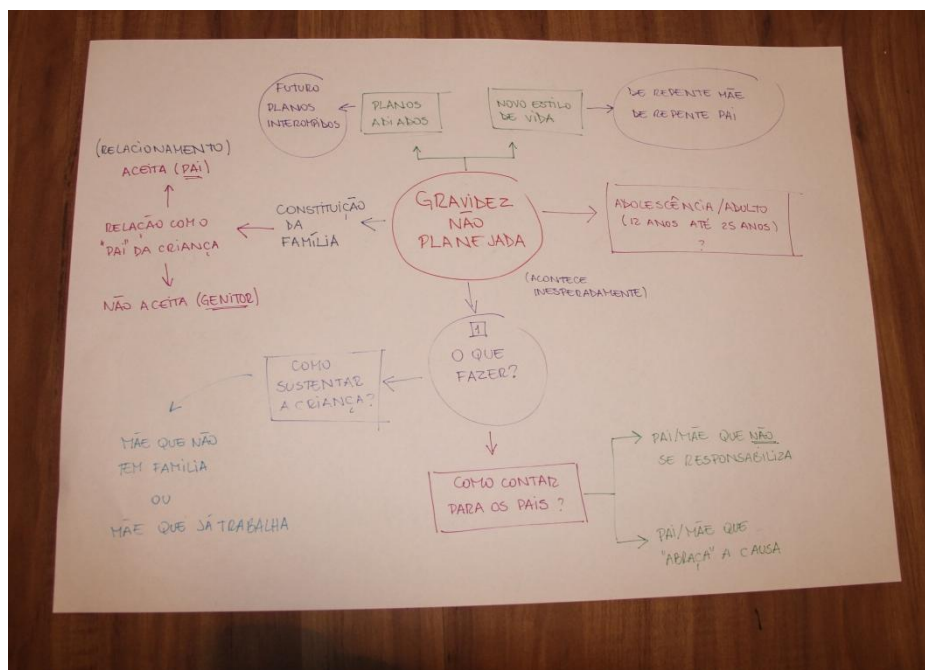 FUTURO
PLANOS
INTEROMPIDOS
PLANOS
ADIADOS
NOVO ESTILO
DE VIDA
DE REPENTE MÃE
DE REPENTE PAI
(RELACIONAMENTO)
ACEITA (PAI)
RELAÇÃO COMO
"PAI" DA CRIANÇA
NÃO ACEITA (GENITOR)
CONSTITUIÇÃO
DA
FAMÍLIA
GRAVIDEZ
NÃO
PLANEJADA
ADOLESCÊNCIA/ADULTO
(12 ANOS ATÉ 25 ANOS)
?
(ACONTECE
INESPERADAMENTE)
1
O QUE
FAZER?
COMO
SUSTENTAR
A CRIANÇA?
MÃE QUE NÃO
TEM FAMÍLIA
OU
MÃE QUE JÁ TRABALHA
COMO CONTAR
PARA OS PAIS ?
PAI/MÃE QUE NÃO
SE RESPONSABILIZA
PAI/MÃE QUE
"ABRAÇA" A CAUSA